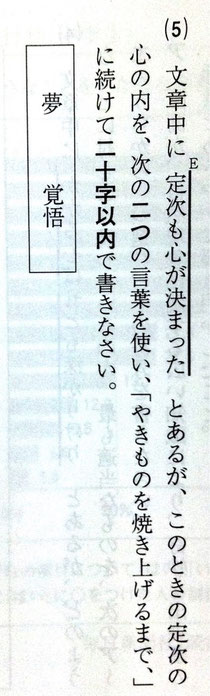 (5) 文章中に 定次も心が決まった とあるが、このときの定次の
E
心の内を、次の二つの言葉を使い、「やきものを焼き上げるまで、」
に続けて二十字以内で書きなさい。
夢 覚悟